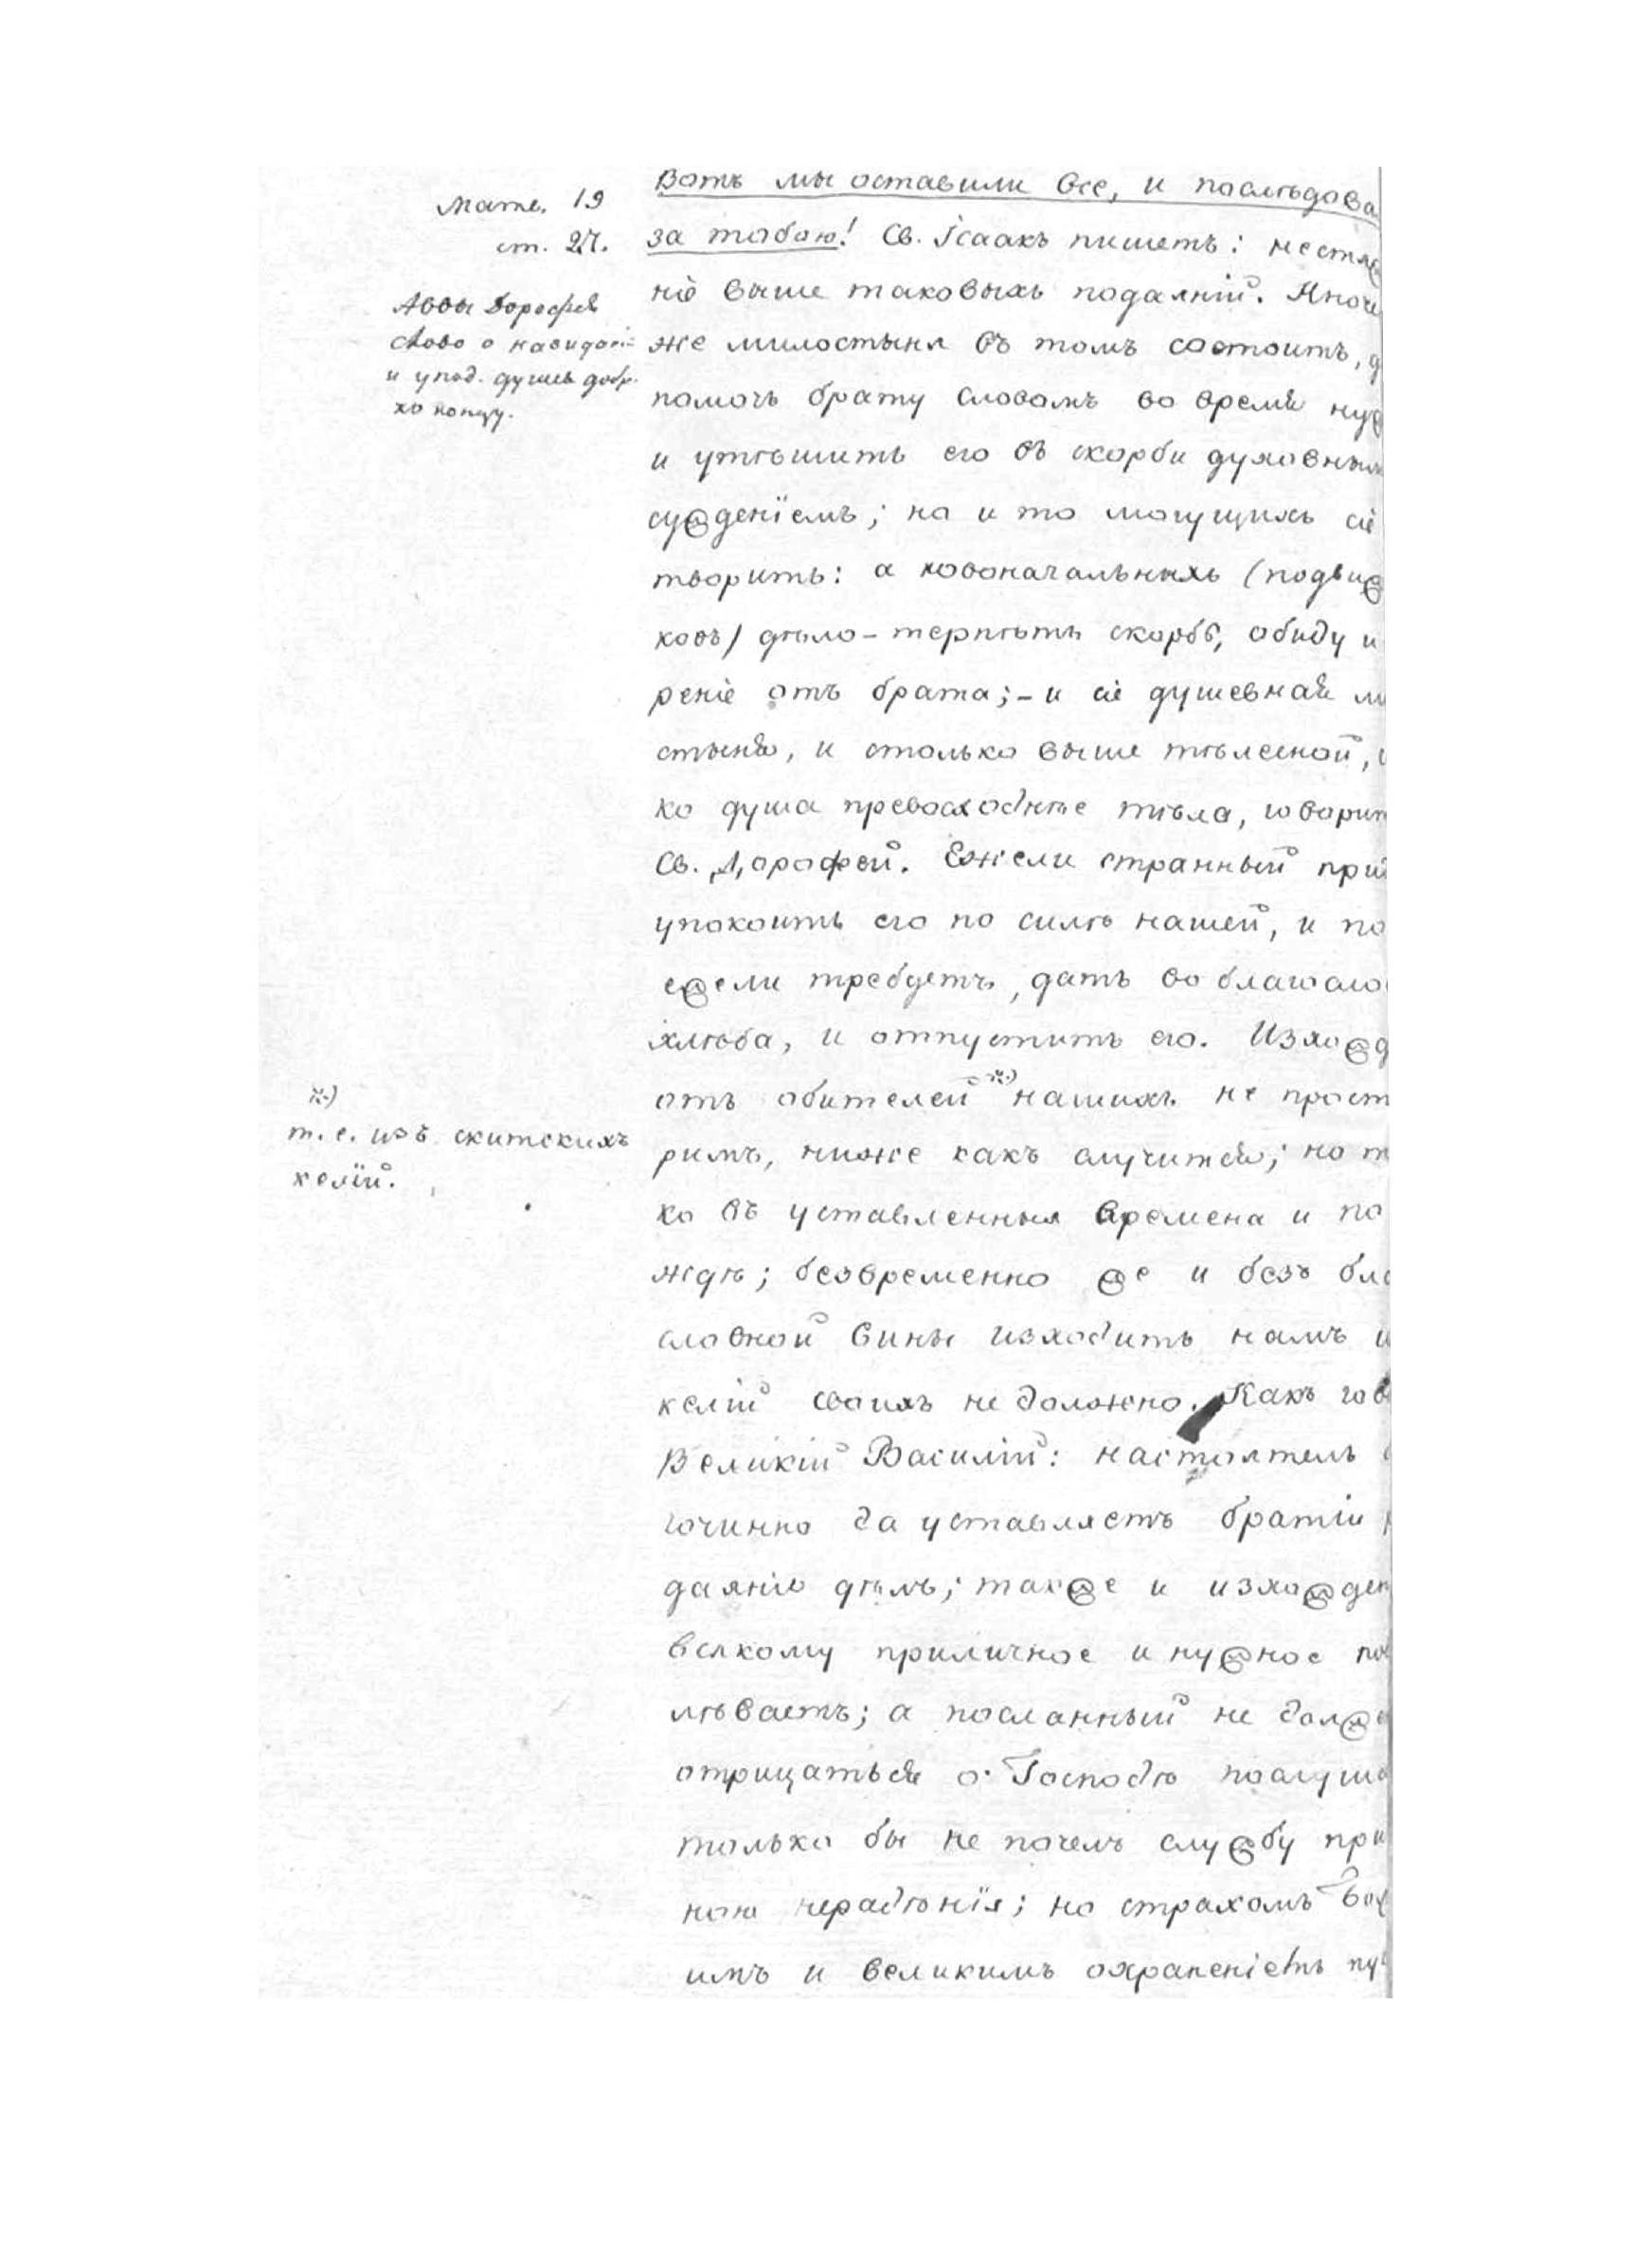 Матѳ. 19
ст. 27.
Аввы Дорофея
слово о назидані
и упод. душев. добр.
ко концу.
*)
т. е. изъ скитскихъ
келій.
Вотъ мы оставили все, и послѣдова
за тобою! Св. Ісаакъ пишетъ: нестяж
ніе выше таковыхъ подаяній. Иноче
же милостыня въ томъ состоитъ, д
помочь брату словомъ во время нуж
и утѣшить его въ скорби духовным
сужденіемъ; но и то могущихъ сіе
творить: а новоначальныхъ (подвиж
ковъ) дѣло - терпѣть скорбь, обиду и
реніе отъ брата; - и сіе душевная ми
стыня, и столько выше тѣлесной, с
ко душа превосходнѣе тѣла, говорит
Св. Дорофей. Ежели странный прид
упокоить его по силѣ нашей, и по
ежели требуетъ, дать во благосло
хлѣба, и отпустить его. Изхожд
отъ обителей *) нашихъ не прост
римъ, ниже какъ случится; но т
ко въ уставленныя времена и по
ждѣ; безвременно же и безъ бла
словной вины изходить намъ и
келій своихъ не должно. Какъ гов
Великій Василій: настоятель
гочинно да уставляетъ братіи
даяніе дѣлъ; также и изхожден
всякому приличное и нужное пов
лѣваетъ; а посланный не долже
отрицаться о Господѣ послуша
только бы не почелъ службу при
ною нерадѣнія; но страхомъ Бож
имъ и великимъ охраненіемъ пу